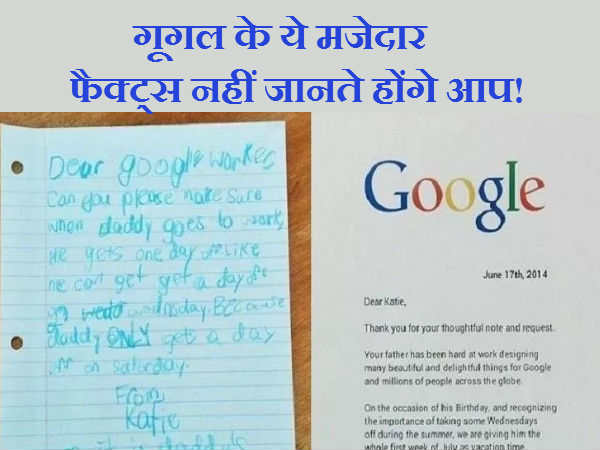 गूगल के ये मजेदार
फैक्ट्स नहीं जानते होंगे आप!
Dear google worker
Can you please make sure
when daddy goes to work,
He gets one day off. Like
he can get get a day off
on wedn wednsday. BECause
daddy ONLY get a day
off on saturday.
From
Katie
Google
June 17th, 2014
Dear Katie,
Thank you for your thoughtful note and request.
Your father has been hard at work designing
many beautiful and delightful things for Google
and millions of people across the globe.
On the occasion of his Birthday, and recognizing
the importance of taking some Wednesdays
off during the summer, we are giving him the
whole first week of July as vacation time.